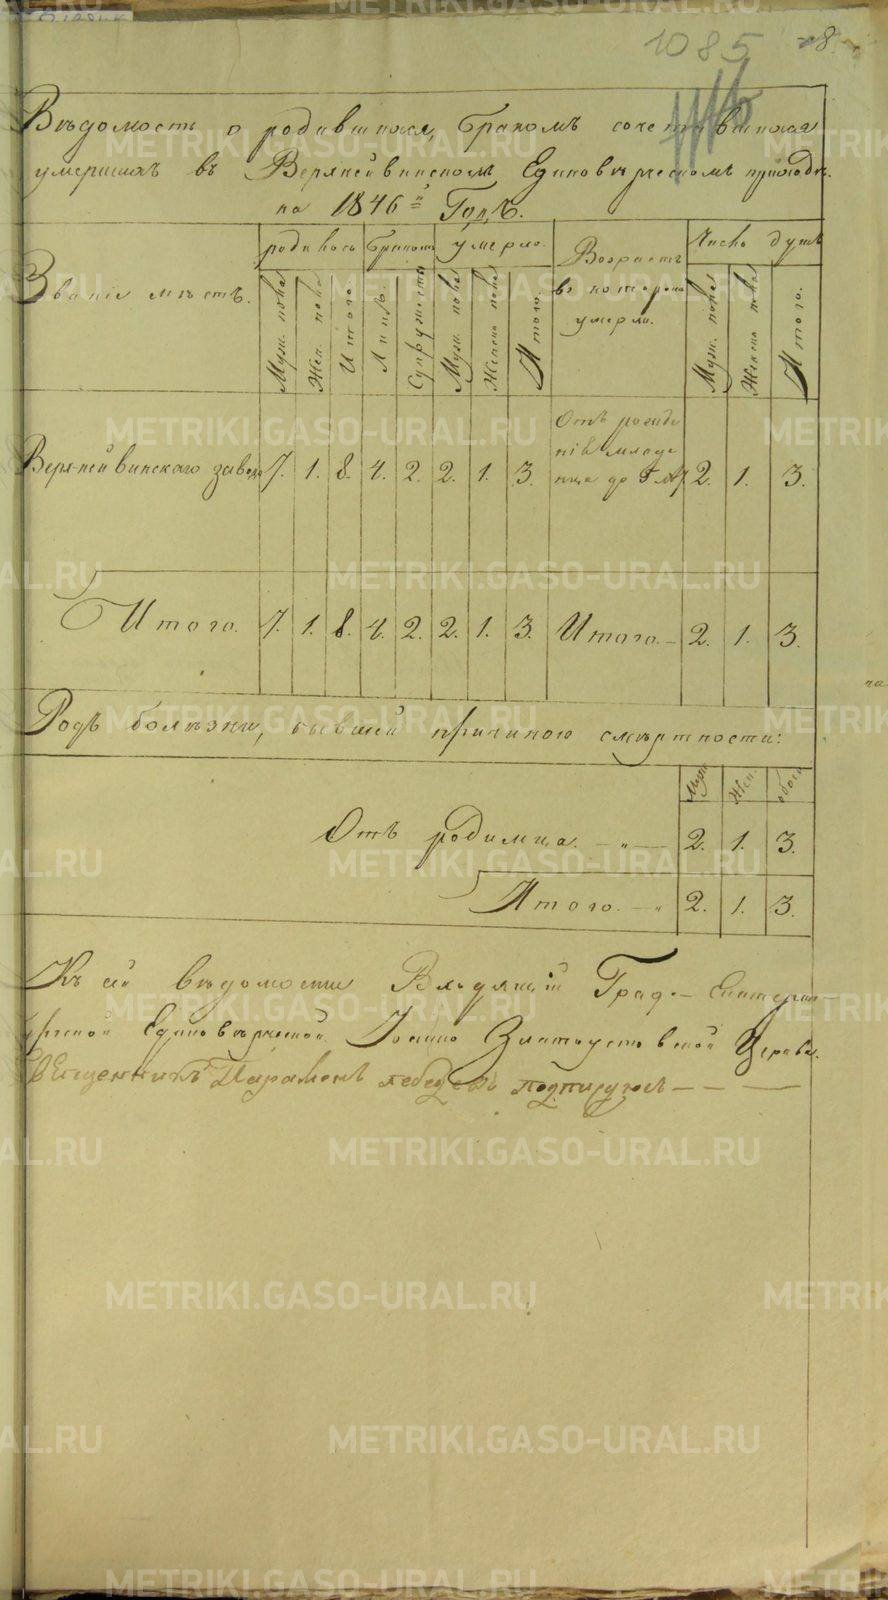 1085
8.
Вѣдомость о родившихся, бракомъ сочетавшихся
умершихъ въ Верхнейвинскомъ Единовѣрческомъ приходѣ.
на 1846й Годъ.
Званіе мѣстъ.
родилось
Бракомъ
умерло.
Возрастъ
въ которомъ
умерли.
Число душъ
Муж. пола
Жен. пола
Итого
Лицъ.
Супружествъ
Муж. пола
Женска пола
Итого.
Муж. пола
Женска пола
Итого.
Верхнейвинскаго завода
7. 1. 8. 4. 2. 2. 1. 3.
Отъ рожде
нія младе
нца до 5 лѣ
2. 1. 3.
Итого. 7. 1. 8. 4. 2. 2. 1. 3. Итого. – 2. 1. 3.
Родъ болѣзни, бывшей причиною смертности:
Муж. Жен. обоего
Отъ родимца. – „ – 2. 1. 3.
Итого. – „ 2. 1. 3.
Къ сей вѣдомости Градо – Екатерин –
бургской Единовѣрческой Іоанно Златоустовской Церкви.
Священникъ Парамонъ Лебедевъ подписуюсь – – –
METRIKI.GASO-URAL.RU